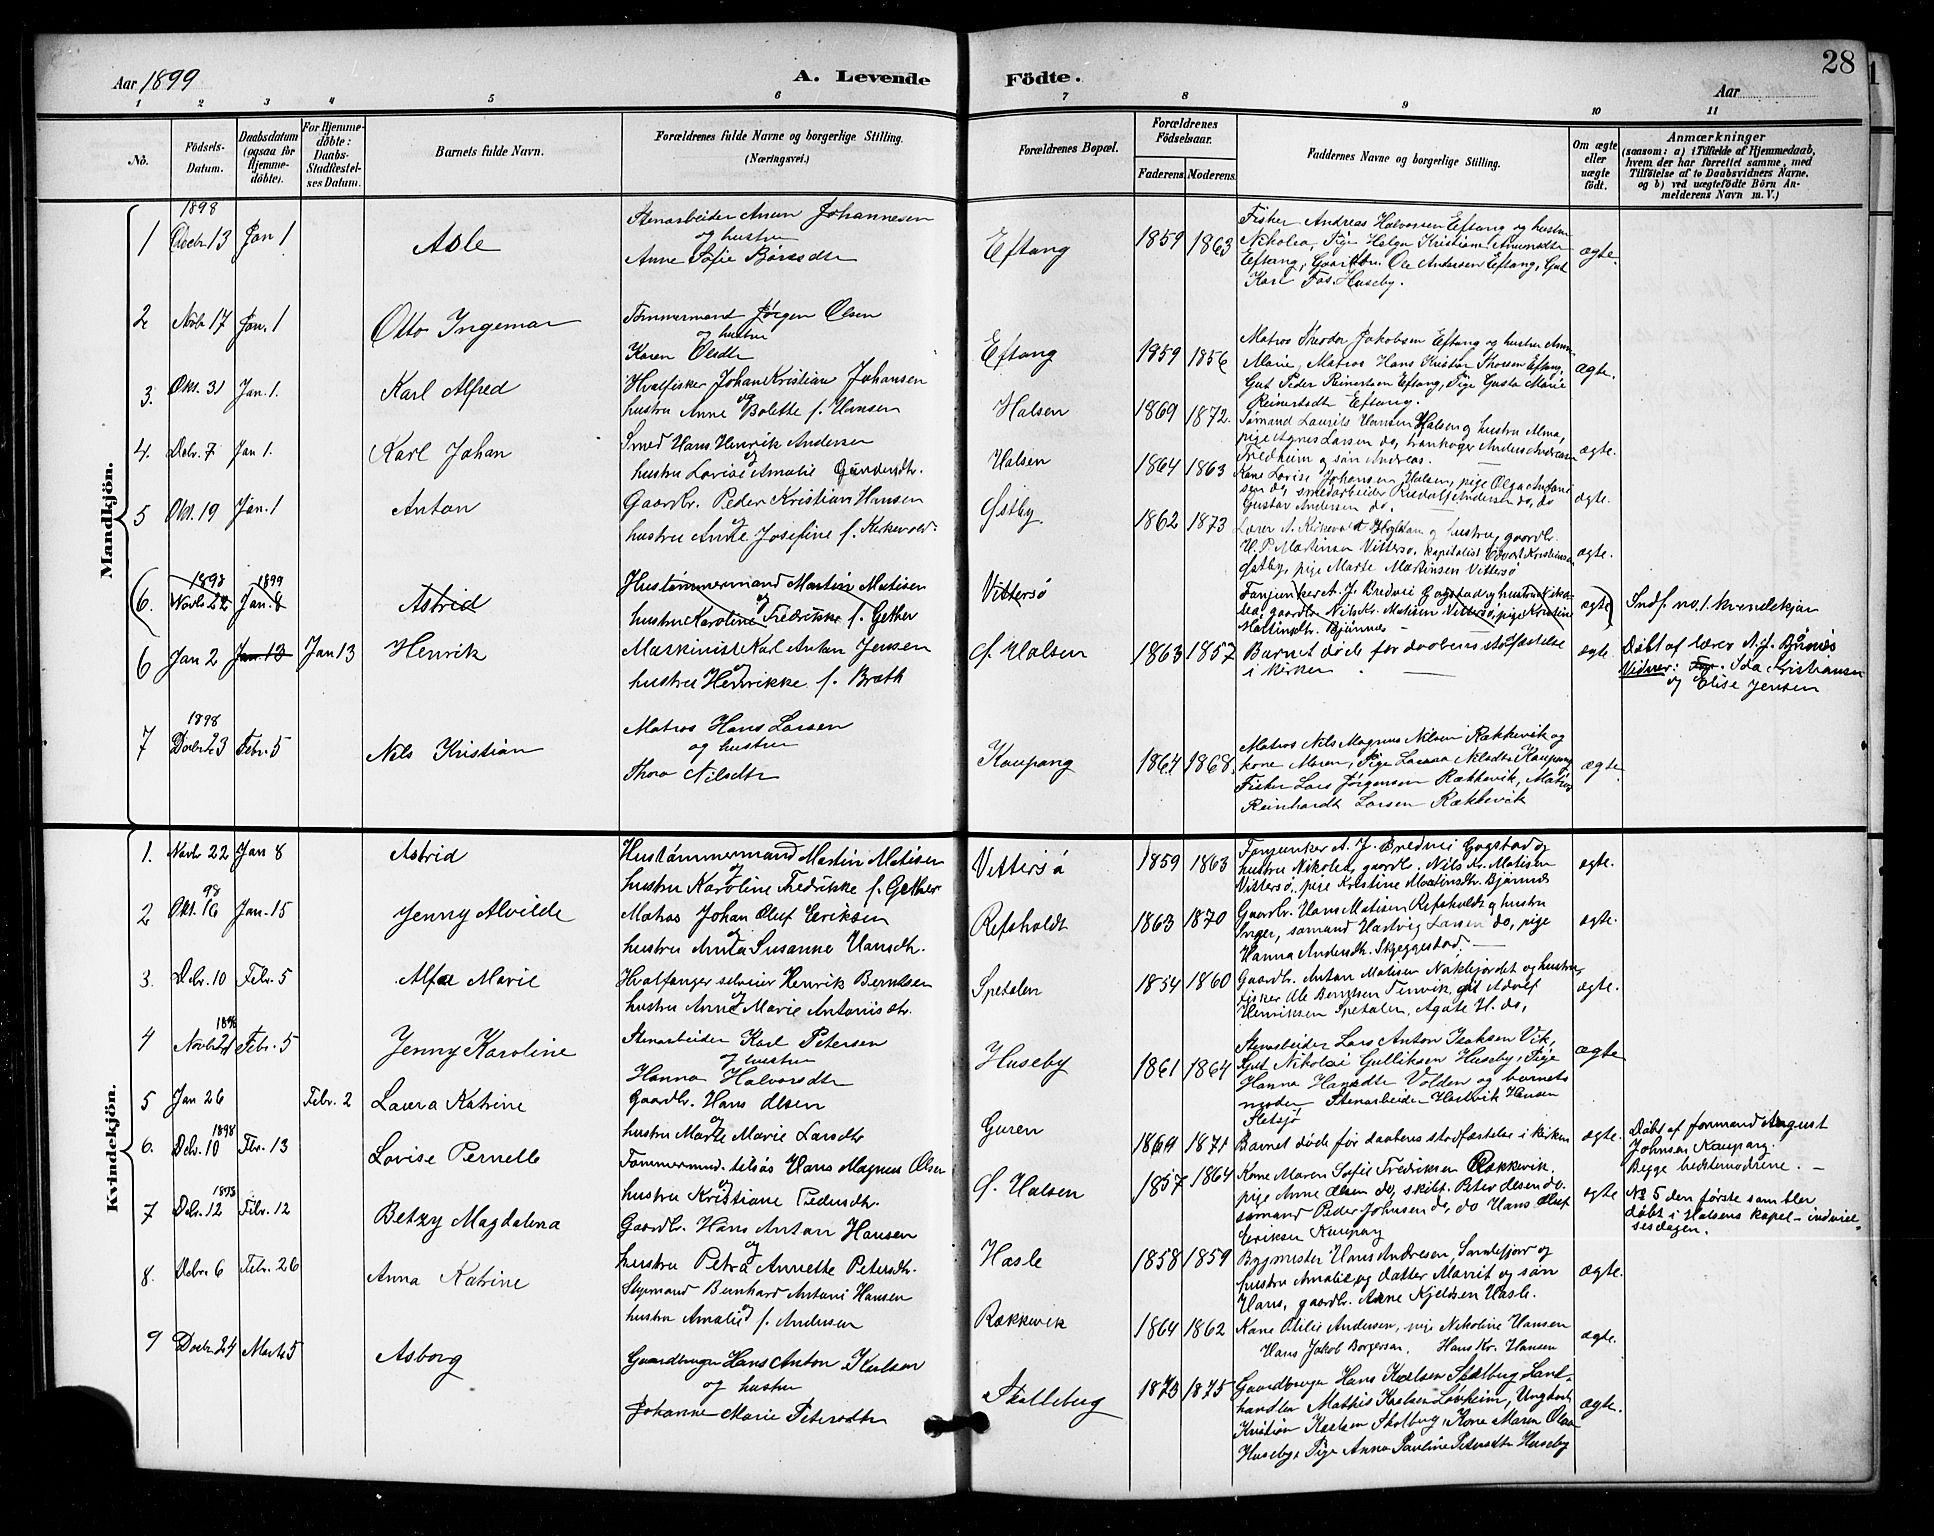 28
Aar 1899
A. Levende Födte.
Aar
1 2 3 4 5 6 7 8 9 10 11
No.
Födsels-Datum.
Daabsdatum (ogsaa for Hjemme-döbte).
For Hjemme-döbte: Daabs-Stadfæstel-ses Datum.
Barnets fulde Navn.
Forældrenes fulde Navne og borgerlige Stilling. (Næringsvei.)
Forældrenes Bopæl.
Forældrenes Födselsaar.
Faderens. Moderens.
Faddernes Navne og borgerlige Stilling.
Om ægte eller uægte födt.
Anmærkninger
(saasom: a) i Tilfælde af Hjemmedaab,
hvem der har forrettet samme, med
Tilföielse af to Daabsvidners Navne,
og b) ved uægtefödte Börn An-
melderens Navn m. V.)
Mandkjön.
1 1898 Decbr 13 Jan 1 Asle
og hustru
Eftang 1859 1863
Fisker Andreas Halvorsen Eftang og hustru
Karl Huseby.
ægte.
2 Novbr 17 Jan. 1 Otto Ingemar
Tømmermand Jørgen Olsen
og hustru
Karen Olsdtr
Eftang 1859 1856
Matros Theodor Jakobsen Eftang og hustru Anne
Marie, Matros Hans Kristian Thorsen Eftang,
Gut Peder Reinertsen Eftang, Pige Gusta Marie
Reinertsdtr Eftang.
ægte.
3. Okt. 31 Jan. 1. Karl Alfred
Hvalfisker Johan Kristian Johansen
og
hustru Anne Bolette f. Hansen
Halsen 1869 1872.
Sømand Laurits Hansen Halsen og hustru Alma,
pige Agnes Larsen do, trankoger Anders Andreasen
Fredheim og søn Andreas.
ægte.
4. Debr. 7 Jan 1. Karl Johan
Smed Hans Henrik Andersen
og
hustru Lovise Amalie Gundersdtr.
Halsen 1864 1863
Kone Lovise Johansen Halsen, pige Olga
Gustav Andersen do.
ægte.
5 Okt. 19 Jan. 1 Anton
Gaardbr. Peder Kristian Hansen
og
hustru Anne Josefine f. Kirkevold
Østby 1862 1873
Lærer A. Kirkevold og hustru, gaardbr.
H. P. Martinsen Vittersø,
Østby, pige Marte Martinsen Vittersø
ægte.
(6. 1898 Novbr 22 1899 Jan. 8 Astrid
Hustømmermand Martin Matisen
og
hustru Karoline Fredrikke f. Gether
Vittersø
Fanjunker A. J. Bredvei Gogstad og hustru Nikolea,
gaardbr Nils Kr. Matisen Vittersø, pige Kristine
Martinsdtr. Bjønnes
ægte)
Indf. no. 1. kvindekjøn
6 Jan 2 Jan 13 Jan 13 Henrik
Maskinist Karl Anton Jensen
og
hustru Henrikke f. Bræth
f. Halsen 1863 1857
Barnet døde før daabens stadfæstelse
i kirken
ægte
Døbt af lærer A. J. Bjønnes
Vidner: Ida Kristiansen
og Elise Jensen
7 1898 Decbr 23 Febr. 5 Nils Kristian
Matros Hans Larsen
og hustru
Thora Nilsdtr
Kaupang 1864 1868.
Matros Nils Magnus Nilsen Rækkevik og
kone Maren, Pige Laura Nilsdtr Kaupang
Fisker Lars Jørgensen Rækkevik, Matros
Reinhardt Larsen Rækkevik
ægte
Kvindekjön.
1. Novbr 22 Jan 8 Astrid
Hustømmermand Martin Matisen
og
hustru Karoline Fredrikke f. Gether
Vittersø 1859 1863
Fanjunker A. J. Bredvei Gogstad og
hustru Nikolea, gaardbr. Nils Kr. Matisen
Vittersø, pige Kristine Martinsdtr. Bjønnes
ægte.
2 98 Okt. 16 Jan. 15 Jenny Alvilde
Matros Johan Oluf Eriksen
og
hustru Anna Susanne Hansdtr.
Refsholdt 1863 1870
Gaardbr. Hans Matisen Refsholdt og hustru
Inger, sømand Hartvig Larsen do, pige
Hanna Andersdtr. Skjeggestad.
ægte.
3. Debr. 10 Febr. 5 Alfa Marie
Hvalfanger selveier Henrik Berntsen
og
hustru Anne Marie Antonisdtr.
Spetalen 1854 1860
Gaardbr. Anton Matisen Naklejordet og hustru,
fisker Ole Berntsen Tenvik, gut Adolf
Henriksen Spetalen, Agate H. do,
ægte.
4 1898 Novbr 21 Febr. 5 Jenny Karoline
Stenarbeider Karl Petersen
og hustru
Hanna Halvorsdtr
Huseby 1861 1864
Stenarbeider Lars Anton Isaksen Vik,
Gut Nikolai Gulliksen Huseby, Pige
Hanna Hansdtr Volden og barnets
moder Stenarbeider Hartvik Hansen
ægte
5 Jan 26 Febr. 2 Laura Katrine
Gaardbr. Hans Olsen
og
hustru Marte Marie Larsdtr
Guren 1869 1871
Barnet døde før daabens stadfæstelse i kirken
ægte.
Døbt af formand August
Johnsen Kaupang.
Begge bedstemødrene. –
6. 1898 Debr. 10 Fbr. 13 Lovise Pernelle
Tømmermd. tilsøs Hans Magnus Olsen
og
hustru Kristiane Pedersdtr.
f. Halsen 1857 1864
Kone Maren Sofie Fredriksen Rækkevik,
pige Anne Olsen do, skibt. Peter Olsen do.
sømand Peder Johnsen do, do Hans Oluf
Eriksen Kaupang
ægte
No 5 den første som blev
døbt i Halsens kapel – indviel-
sesdagen.
7 1898 Debr. 12 Febr. 12 Betzy Magdalena
Gaardbr. Hans Anton Hansen
og
hustru Petra Annette Petersdtr.
Hasle 1858 1859
Bygmester Hans Andresen, Sandefjord og
hustru Amalie og datter Marrit og søn
Hans, gaardbr. Arne Kjeldsen Hasle.
ægte.
8. Debr. 6 Febr. 26 Anna Katrine
Styrmand Bernhard Antoni Hansen
og
hustru Amalie f. Andersen
Rækkevik 1864 1862
Kone Otilie Andersen, pige Nikoline Hansen
Hans Jakob Borgersen, Hans Kr. Hansen
ægte.
9 Decbr. 24 Marts 5 Asborg
Gaardbruger Hans Anton Karlsen
og hustru
Johanne Marie Petersdtr
Skalleberg 1873 1875
Gaardbruger Hans Karlsen Skalberg, Land-
handler Mathis Karlsen Løvheim, Ungkarl
Kristian Karlsen Skalberg, Kone Maren Olsen
Huseby, Pige Anna Pauline Petersdtr Huseby
ægte.